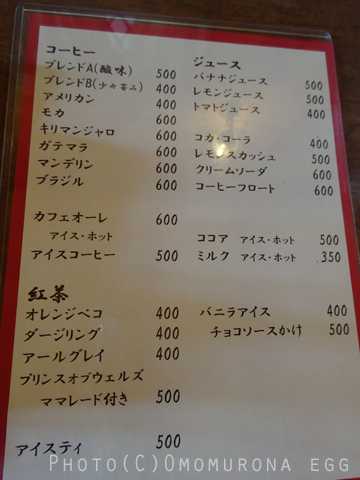 コーヒー
ブレンドA(酸味) 500
ブレンドB(少々苦み) 400
アメリカン 400
モカ 600
キリマンジャロ 600
ガテマラ 600
マンデリン 600
ブラジル 600
カフェオーレ 600
アイス・ホット
アイスコーヒー 500
紅茶
オレンジペコ 400
ダージリング 400
アールグレイ 400
プリンスオブウェルズ
ママレード付き 500
アイスティ 500
ジュース
バナナジュース 500
レモンジュース 500
トマトジュース 400
コカ・コーラ 400
レモンスカッシュ 500
クリームソーダ 600
コーヒーフロート 600
ココア アイス・ホット 500
ミルク アイス・ホット 350
バニラアイス 400
チョコソースかけ 500
Photo(C)Omomurona egg